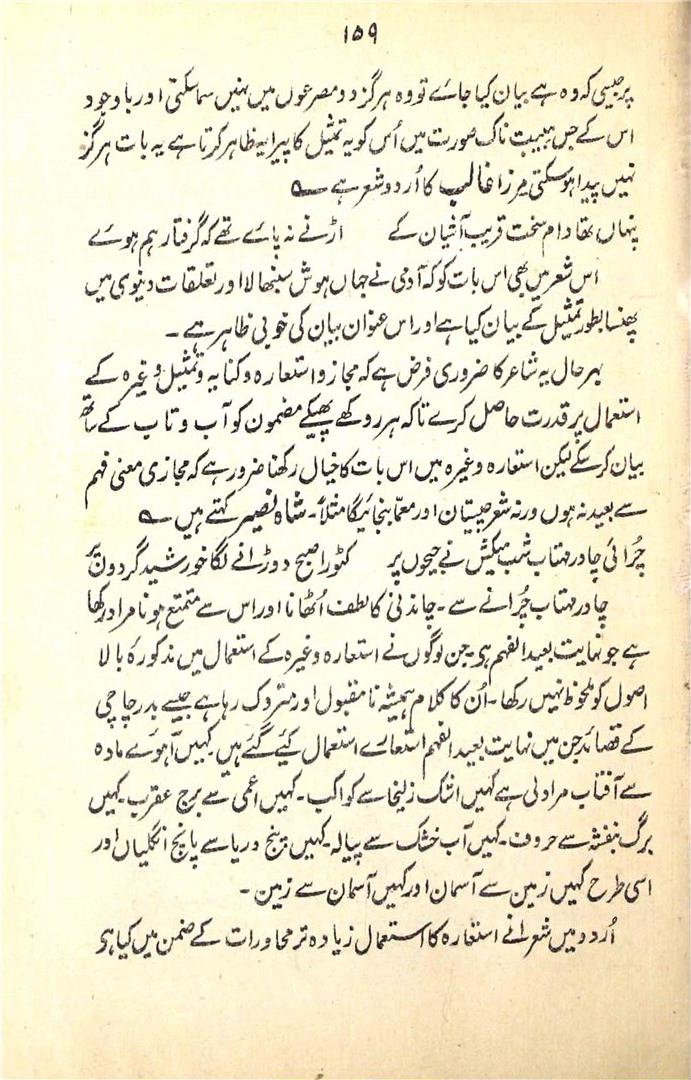 ۱۵۹
پر جیسی کہ وہ ہے بیان کیا جاے تو وہ ہرگز دو مصرعوں میں نہیں سما سکتی اور باوجود
اس کے جس ہیبت ناک صورت میں اُس کو یہ تمثیل کا پیرایہ ظاہر کرتا ہے یہ بات ہرگز
نہیں پیدا ہو سکتی مرزا غالب کا اُردو شعر ہے ؎
پنہاں تھا دام سخت قریب آشیان کے اڑنے نہ پاے تھے کہ گرفتار ہم ہوے
اس شعر میں بھی اس بات کو کہ آدمی نے جہاں ہوش سنبھالا اور تعلقات دنیوی میں
پھنسا بطور تمثیل کے بیان کیا ہے اور اس عنوان بیان کی خوبی ظاہر ہے ۔
بہر حال یہ شاعر کا ضروری فرض ہے کہ مجاز و استعارہ و کنایہ و تمثیل وغیرہ کے
استعمال پر قدرت حاصل کرے تاکہ ہر روکھے پھیکے مضمون کو آب و تاب کے ساتھ
بیان کر سکے لیکن استعارہ وغیرہ میں اس بات کا خیال رکھنا ضرور ہے کہ مجازی معنی فہم
سے بعید نہ ہوں ورنہ شعر چیستان اور معمّا بنجائیگا مثلاً ۔ شاہ نصیر کہتے ہیں ؎
چُرائی چادر مہتاب شب میکش نے جیحوں پر کٹورا صبح دوڑانے لگا خورشید گردوں پر
چادر مہتاب چُرانے سے ۔ چاندنی کا لطف اُٹھانا اور اس سے متمتع ہونا مراد رکھا
ہے جو نہایت بعید الفہم ہی ۔ جن لوگوں نے استعارہ وغیرہ کے استعمال میں مذکورۂ بالا
اصول کو ملحوظ نہیں رکھا ۔ اُن کا کلام ہمیشہ نامقبول اور متروک رہا ہے جیسے بدر چاچی
کے قصائد جن میں نہایت بعید الفہم استعارے استعمال کیے گئے ہیں کہیں آہوے مادہ
سے آفتاب مراد لی ہے کہیں اشک زلیخا سے کواکب ۔ کہیں اعمی سے برج عقرب ۔ کہیں
برگ بنفشہ سے حروف ۔ کہیں آب خشک سے پیالہ ۔ کہیں پنج دریا سے پانچ انگلیاں اور
اسی طرح کہیں زمین سے آسمان اور کہیں آسمان سے زمین ۔
اُردو میں شعرا نے استعارہ کا استعمال زیادہ تر محاورات کے ضمن میں کیا ہی